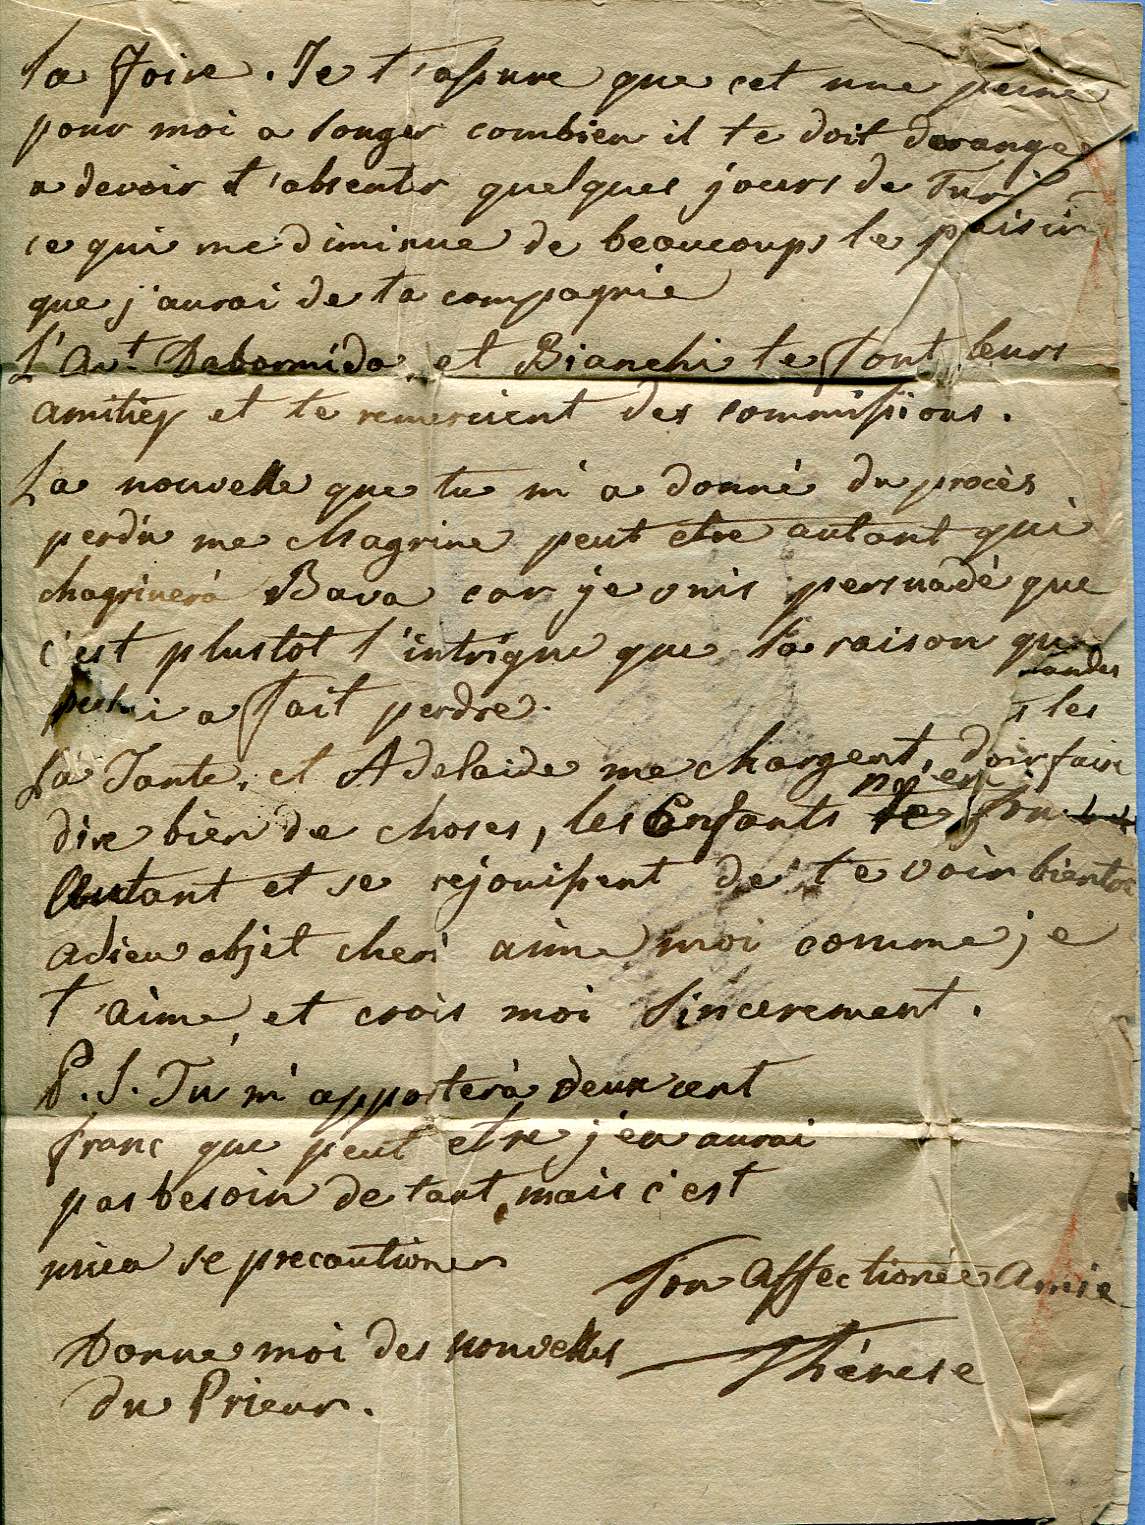 la foire. Je t'assure que cet une peine
pour moi a songer combien il te doit deranger
a devoir t'absenter quelques jours de Turin
ce qui me diminue de beaucoup le plaisir
que j'aurai de ta compagnie
L'Av.t Dabormida et Bianchi te font leurs
amitiés et te remercient des commissions.
La nouvelle que tu m'a donné du procès
perdu me chagrine peut etre autant qui
chagrinerà Bava car je suis persuadé que
c'est plustôt l'intrigue que la raison qui
a fait perdre.
les
La Tante, et Adelaide me chargent, faire
dire bien de choses, les Enfants te font
autant et se rejouissent de te voir bientot
adieu objet cheri aime moi comme je
t'aime, et crois moi sincerement.
P.S. Tu m'apporterà deux cent
franc que peut etre j'en aurai
pas besoin de tant, mais c'est
mieu se precautioner
Ton Affectionée Amie
Thérese
Donne moi des nouvelles
du Prieur.